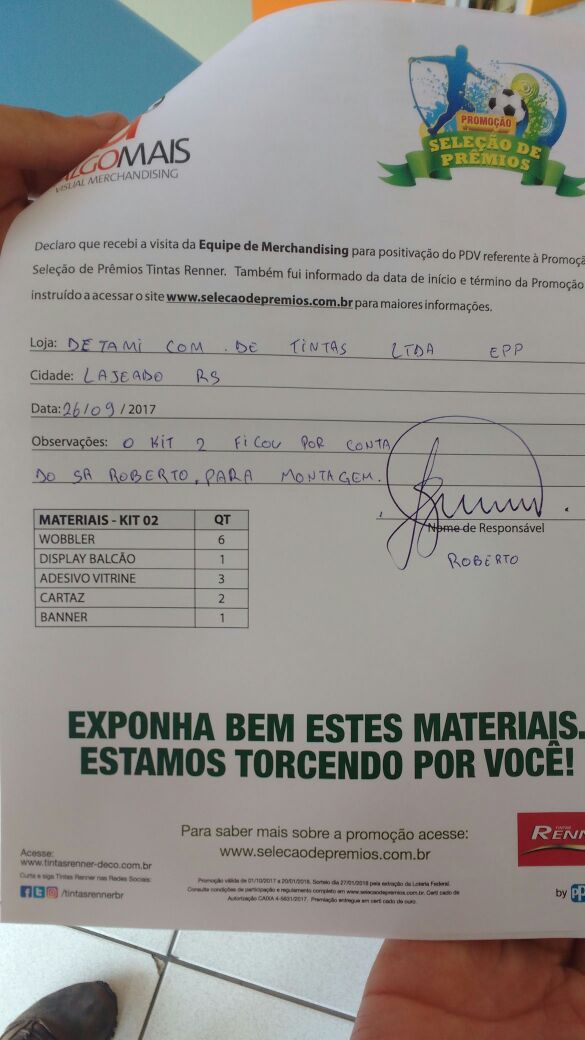 ALGOMAIS
VISUAL MERCHANDISING
PROMOÇÃO
SELEÇÃO DE
PRÊMIOS
Declaro que recebi a visita da Equipe de Merchandising para positivação do PDV referente à Promoçã
Seleção de Prêmios Tintas Renner. Também fui informado da data de início e término da Promoção
instruído a acessar o site www.selecaodepremios.com.br para maiores informações.
Loja: DETAMI COM. DE TINTAS LTDA EPP
Cidade: LAJEADO RS
Data: 26/09/2017
Observações: O KIT 2 FICOU POR CONTA
DO SR ROBERTO, PARA MONTAGEM.
Nome de Responsável
ROBERTO
MATERIAIS - KIT 02 QT
WOBBLER 6
DISPLAY BALCÃO 1
ADESIVO VITRINE 3
CARTAZ 2
BANNER 1
EXPONHA BEM ESTES MATERIAIS.
ESTAMOS TORCENDO POR VOCÊ!
Para saber mais sobre a promoção acesse:
www.selecaodepremios.com.br
RENN
Acesse:
www.tintasrenner-deco.com.br
Curta e siga Tintas Renner nas Redes Sociais:
/tintasrennerbr
Promoção válida de 01/10/2017 a 20/01/2018. Sorteio dia 27/01/2018 pela extração da Loteria Federal.
Consulte condições de participação e regulamento completo em www.selecaodepremios.com.br. Certificado de
Autorização CAIXA 4-5631/2017. Premiação entregue em certificado de ouro.
by pp